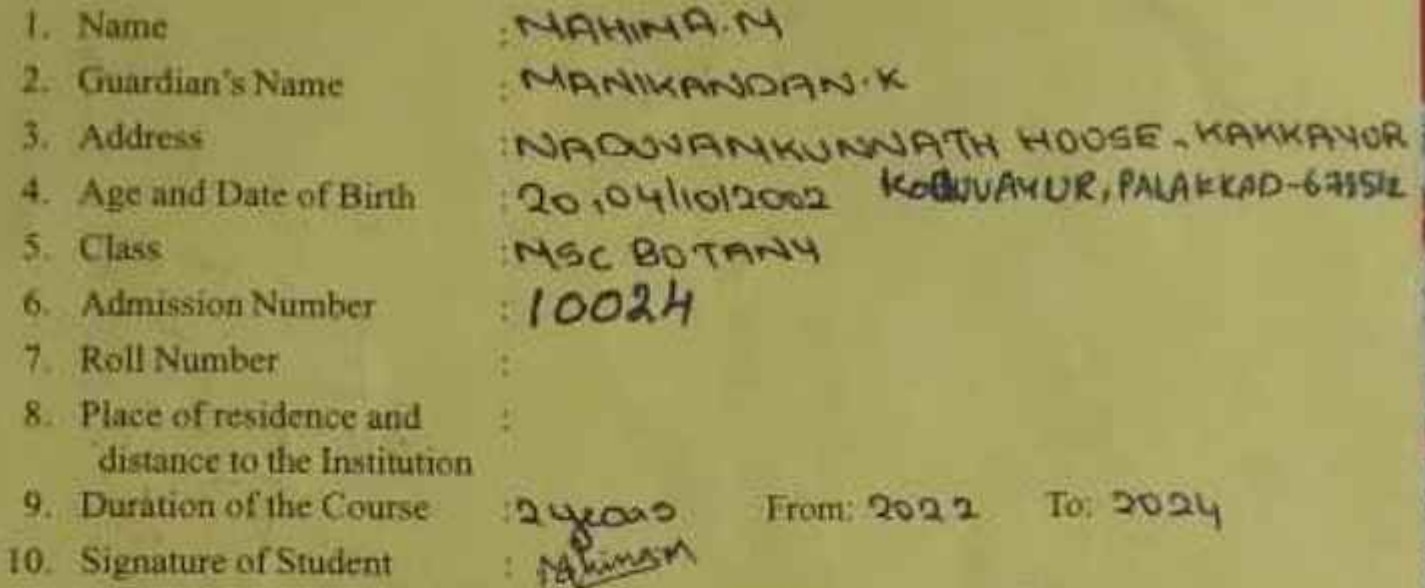 1. Name : MAHIMA.M
2. Guardian's Name : MANIKANDAN.K
3. Address : NADUVANKUNNATH HOUSE, KAKKAYUR
KODUVAYUR, PALAKKAD-
4. Age and Date of Birth : 20, 04/10/2002
5. Class : MSC BOTANY
6. Admission Number : 10024
7. Roll Number :
8. Place of residence and :
distance to the Institution
9. Duration of the Course : 2 years From: 2022 To: 2024
10. Signature of Student : Mahima.M